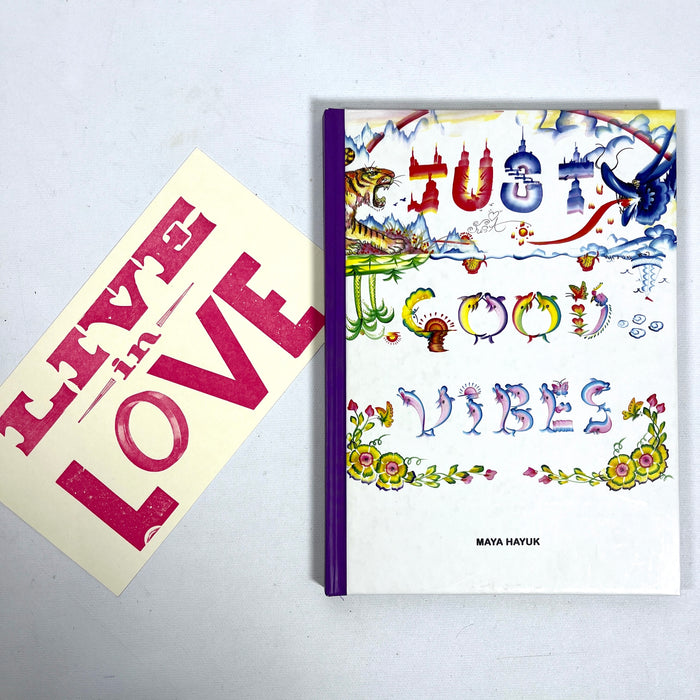 LIVE
in
LOVE
JUST
GOOD
VIBES
MAYA HAYUK